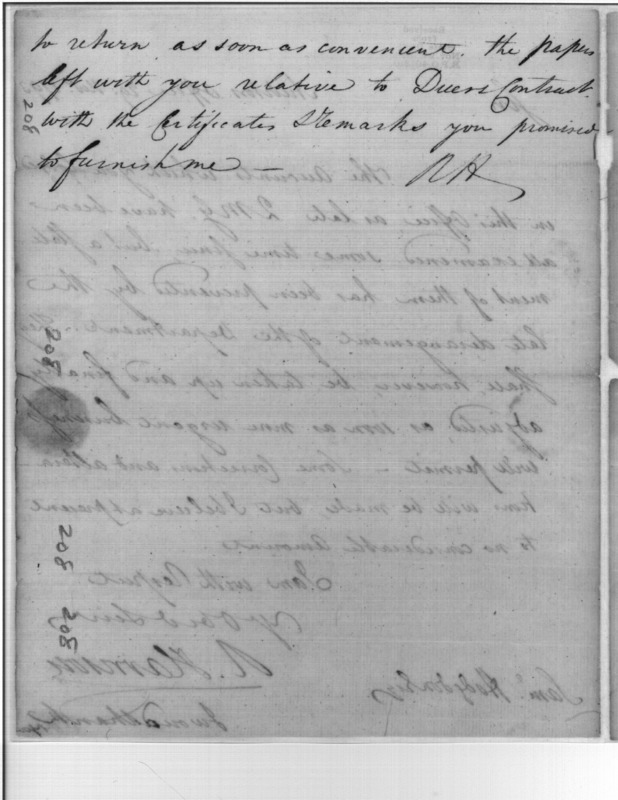 to return as soon as convenient. the papers
left with you relative to Duers Contract.
with the Certificates & Remarks you promised
to furnish me —
RH
208
the Accounts which
in this Office as late Q M G, have been
all examined some time since, but a state
ment of them has been prevented by the
late derangement of the Department. They
shall however be taken up and finally
adjusted, as soon as more urgent business
will permit - Some Corrections and altera
tions will be made but I believe at present
to no considerable Amount
I am with Respect
Yr Obed Serv
R. Harrison
Saml Hodgdon Esq
I would thank you
208
208
208